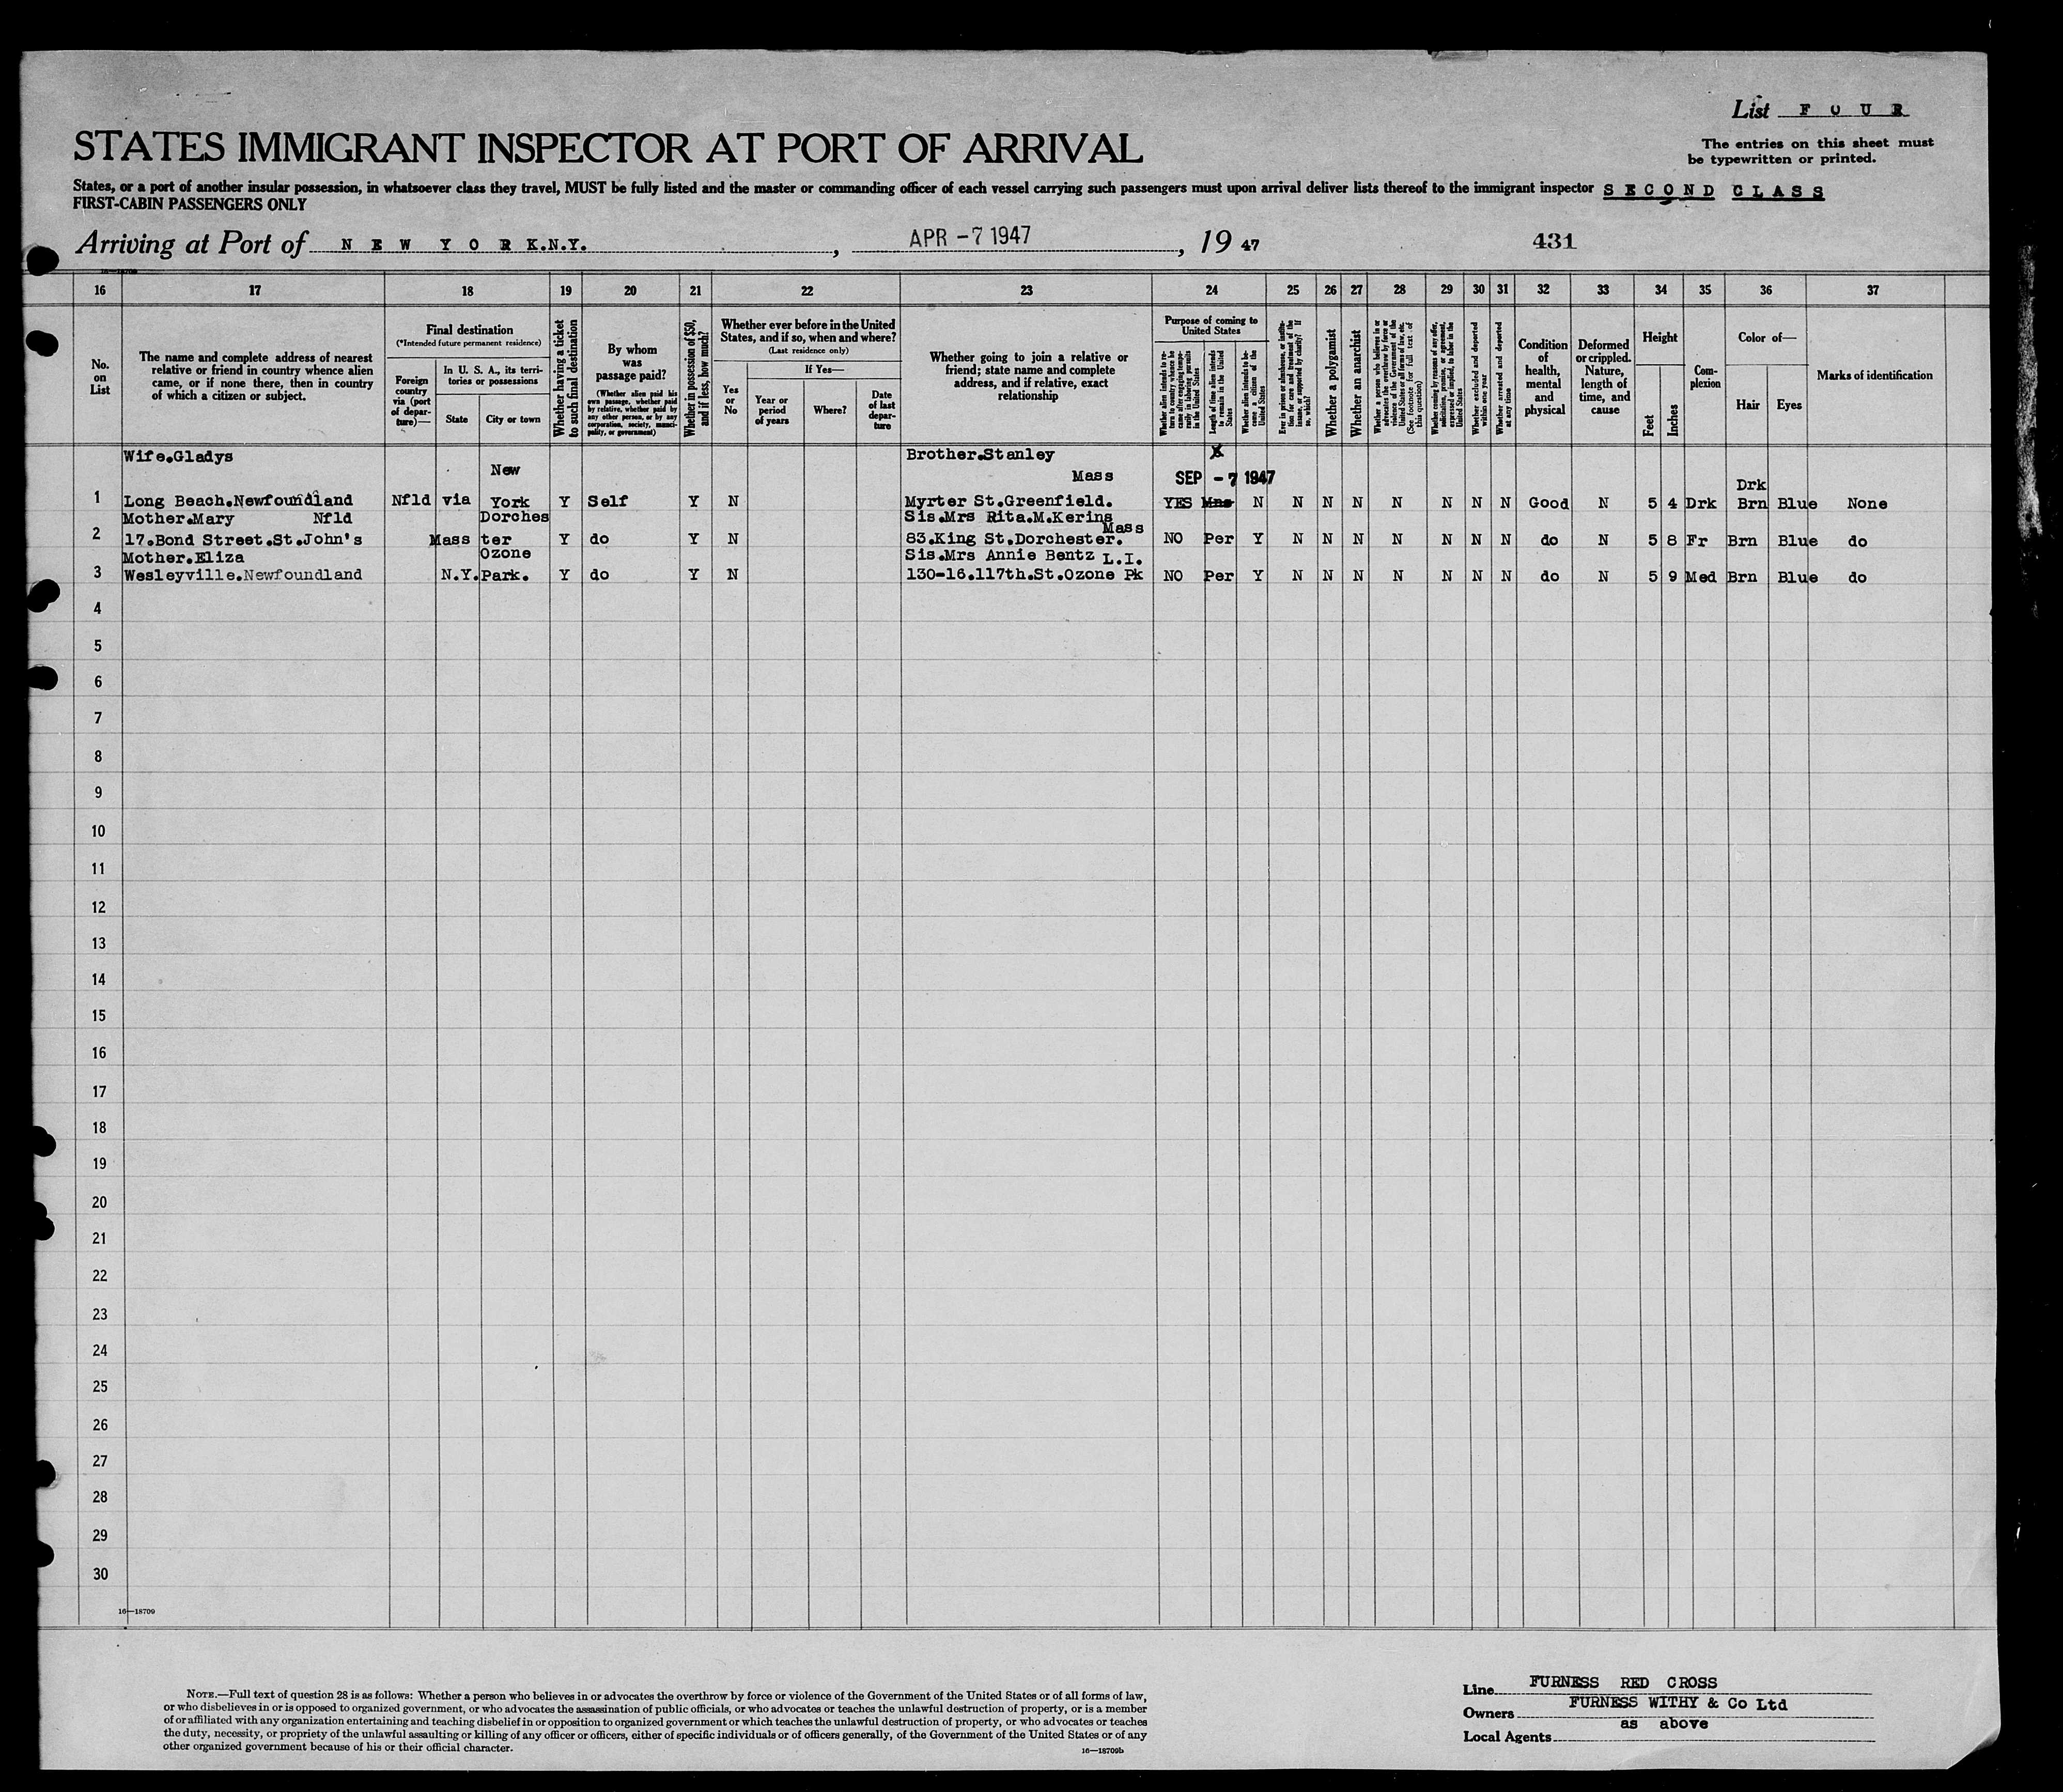 List F O U R
The entries on this sheet must
be typewritten or printed.
STATES IMMIGRANT INSPECTOR AT PORT OF ARRIVAL
States, or a port of another insular possession, in whatsoever class they travel, MUST be fully listed and the master or commanding officer of each vessel carrying such passengers must upon arrival deliver lists thereof to the immigrant inspector S E C O N D C L A S S
FIRST-CABIN PASSENGERS ONLY
Arriving at Port of N E W Y O R K.N.Y. , APR -7 1947 , 19 47 431
16 17 18 19 20 21 22 23 24 25 26 27 28 29 30 31 32 33 34 35 36 37
No. on List
The name and complete address of nearest relative or friend in country whence alien came, or if none there, then in country of which a citizen or subject.
Final destination
(*Intended future permanent residence)
Foreign country via (port of departure)—
In U. S. A., its territories or possessions
State
City or town
Whether having a ticket to such final destination
By whom was passage paid?
(Whether alien paid his own passage, whether paid by relative, whether paid by any other person, or by any corporation, society, municipality, or government)
Whether in possession of $50, and if less, how much?
Whether ever before in the United States, and if so, when and where?
(Last residence only)
If Yes—
Yes or No
Year or period of years
Where?
Date of last departure
Whether going to join a relative or friend; state name and complete address, and if relative, exact relationship
Purpose of coming to United States
Whether alien intends to return to country whence he came after engaging temporarily in laboring pursuits in the United States
Length of time alien intends to remain in the United States
Whether alien intends to become a citizen of the United States
Ever in prison or almshouse, or institution for care and treatment of the insane, or supported by charity? If so, which?
Whether a polygamist
Whether an anarchist
Whether a person who believes in or advocates the overthrow by force or violence of the Government of the United States or all forms of law, etc. (See footnote for full text of this question)
Whether coming by reasons of any offer, solicitation, promise, or agreement, expressed or implied, to labor in the United States
Whether excluded and deported within one year
Whether arrested and deported at any time
Condition of health, mental and physical
Deformed or crippled. Nature, length of time, and cause
Height
Feet
Inches
Complexion
Color of—
Hair
Eyes
Marks of identification
Wife.Gladys New Brother.Stanley X
Mass SEP - 7 1947 Drk
1 Long Beach.Newfoundland Nfld via York Y Self Y N Myrter St.Greenfield. YES Mns N N N N N N N N Good N 5 4 Drk Brn Blue None
Mother.Mary Nfld Dorches Sis.Mrs Rita.M.Kerins Mass
2 17.Bond Street.St.John's Mass ter Y do Y N 83.King St.Dorchester. NO Per Y N N N N N N N do N 5 8 Fr Brn Blue do
Mother.Eliza Ozone Sis.Mrs Annie Bentz L.I.
3 Wesleyville.Newfoundland N.Y. Park. Y do Y N 130-16.117th.St.Ozone Pk NO Per Y N N N N N N N do N 5 9 Med Brn Blue do
4
5
6
7
8
9
10
11
12
13
14
15
16
17
18
19
20
21
22
23
24
25
26
27
28
29
30
16—18709
NOTE.—Full text of question 28 is as follows: Whether a person who believes in or advocates the overthrow by force or violence of the Government of the United States or of all forms of law,
or who disbelieves in or is opposed to organized government, or who advocates the assassination of public officials, or who advocates or teaches the unlawful destruction of property, or is a member
of or affiliated with any organization entertaining and teaching disbelief in or opposition to organized government or which teaches the unlawful destruction of property, or who advocates or teaches
the duty, necessity, or propriety of the unlawful assaulting or killing of any officer or officers, either of specific individuals or of officers generally, of the Government of the United States or of any
other organized government because of his or their official character.
16—18709b
Line FURNESS RED CROSS
Owners FURNESS WITHY & Co Ltd
Local Agents as above